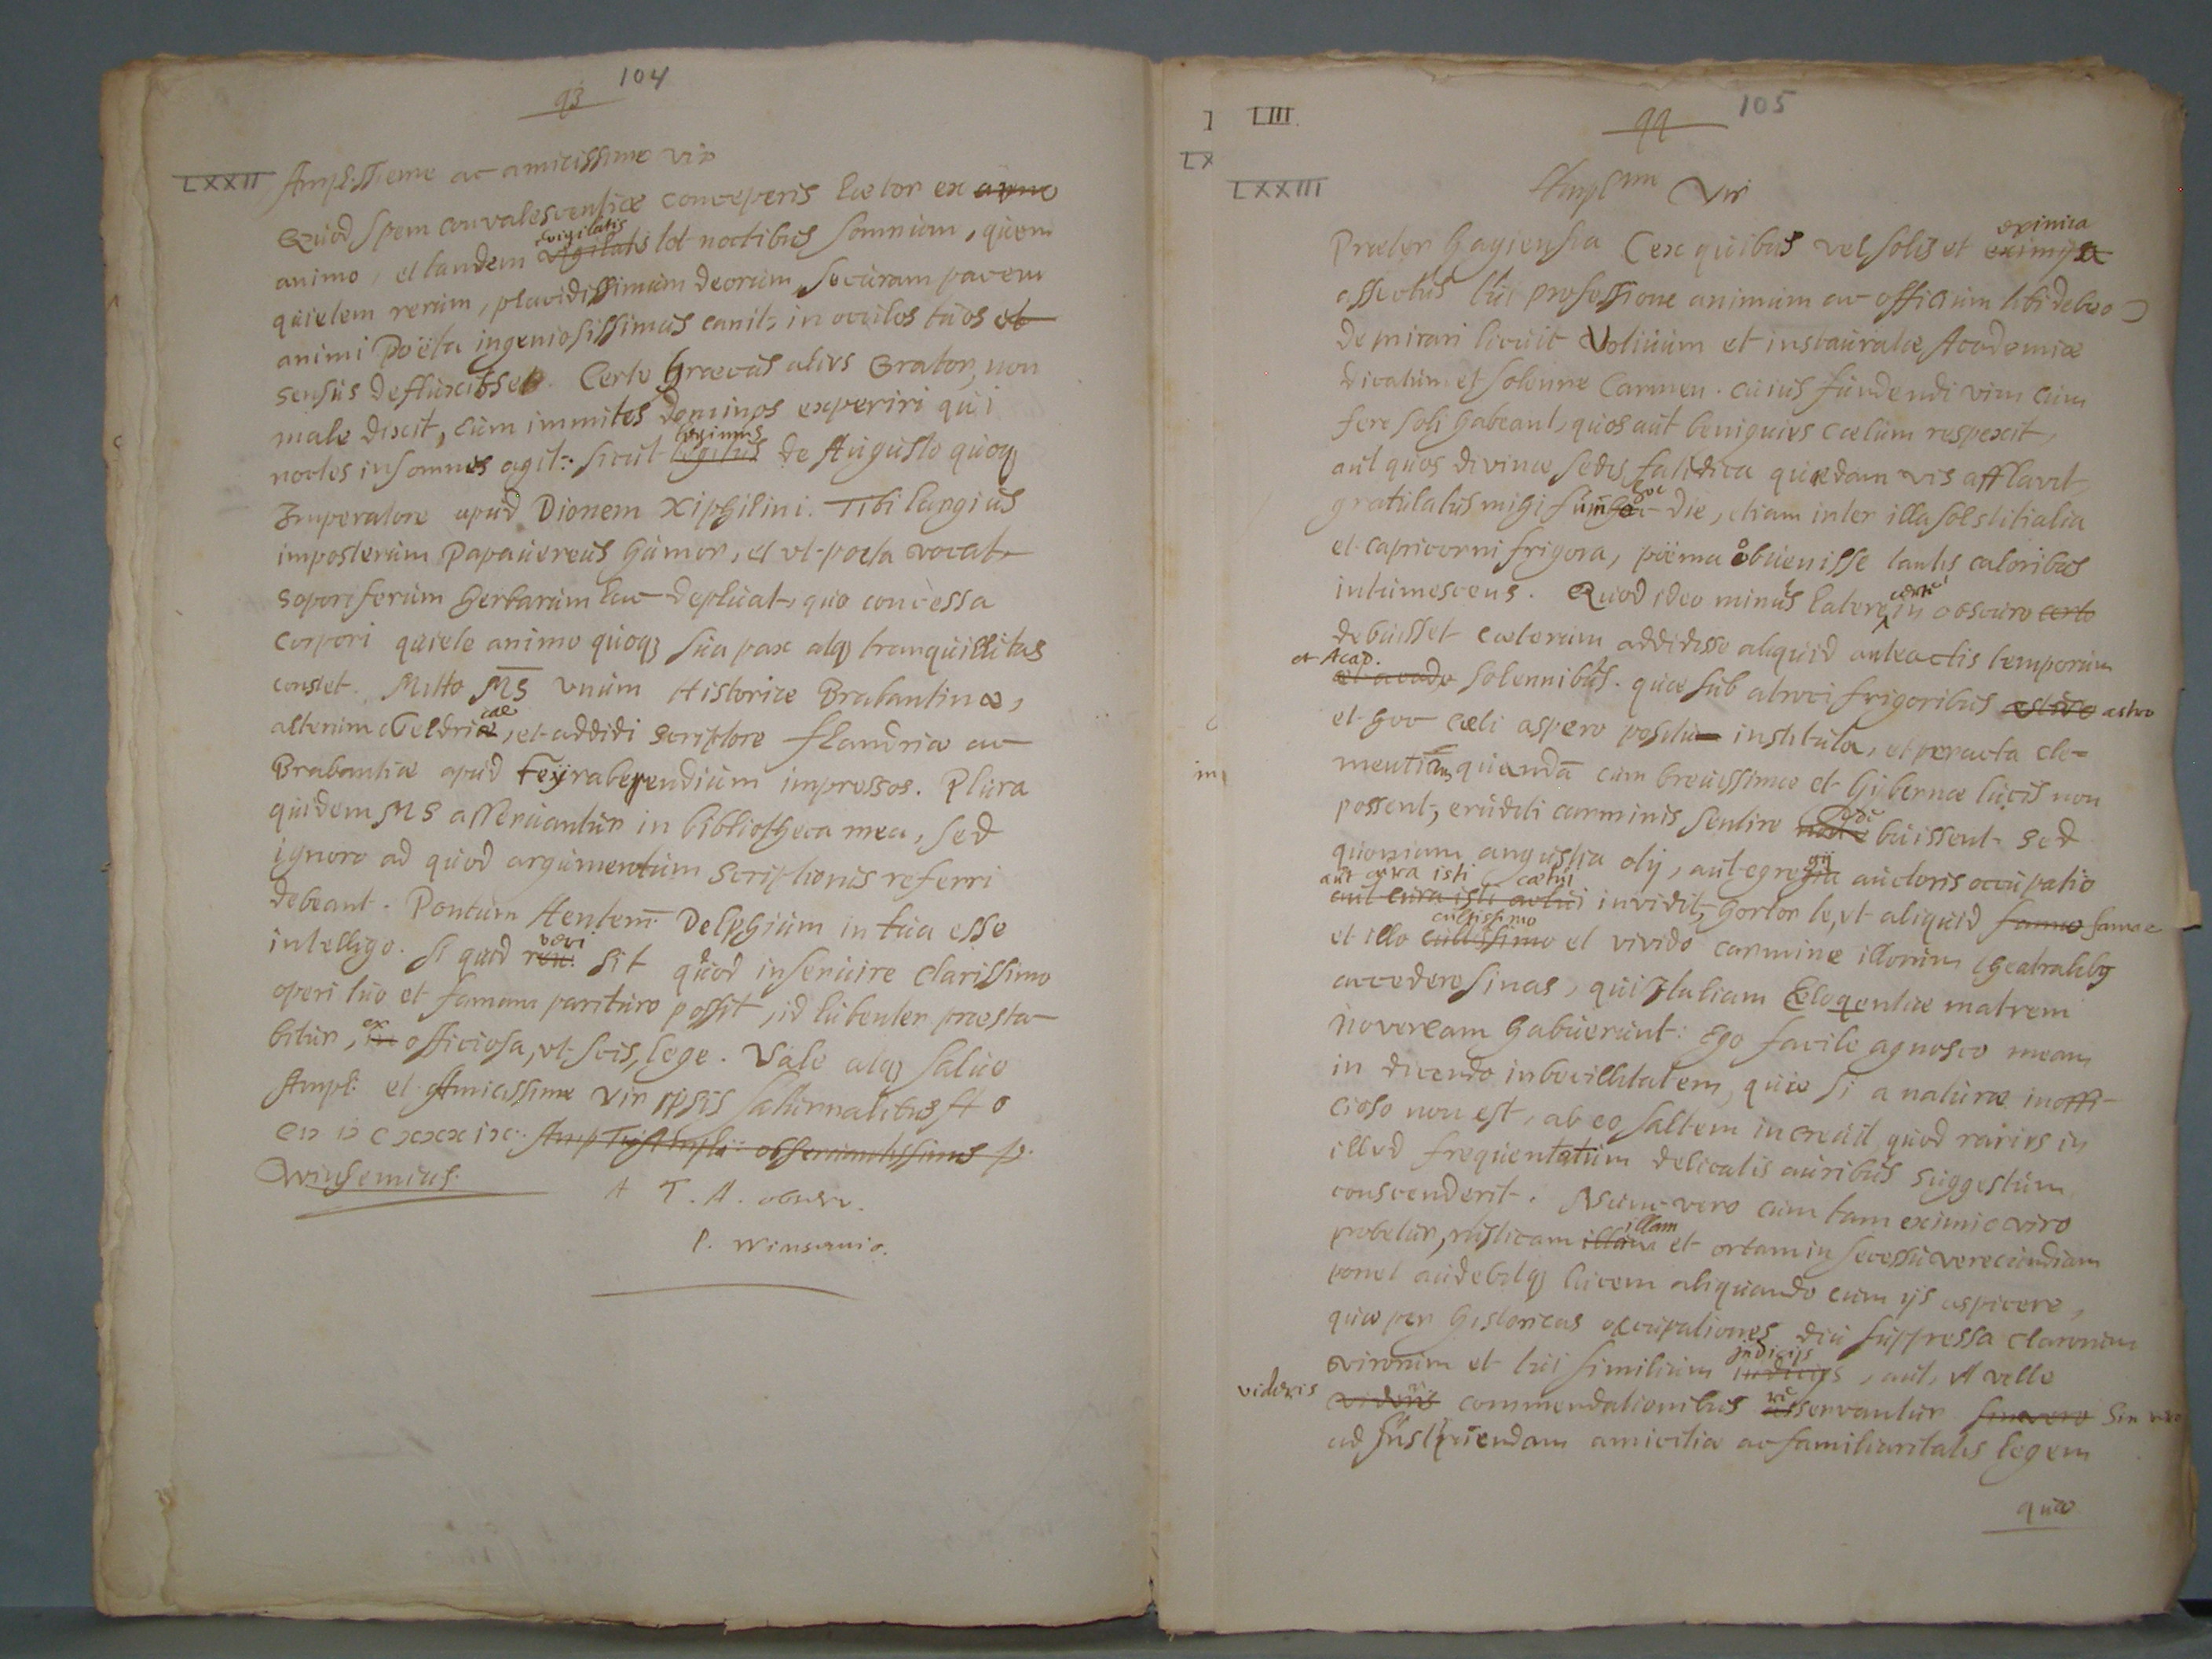 104
93
LXXII
Amplissime ac amicissime vir
Quod spem convalescentiæ conceperis lætor ex animo
animo, et tandem vigilatis evigilatis tot noctibus somnium, quem
quietem rerum, placidissimum deorum, securam pacem
animi Poëta ingeniosissimus canit, in oculos tuos et
sensus defluxisse. Certe Græcus alius Orator, non
male dixit, cum immites dominos experiri qui
noctes insomnes agit: sicut legitur legimus de Augusto quoq
Imperatore apud Dionem Xiphilini. Tibi largius
imposterum Papauereus humor, et vt poeta vocat
soporiferum herbarum lac depluat, quo concessa
corpori quiete animo quoq sua pax atq tranquillitas
constet. Mitto MS vnum Historiæ Brabantinæ,
alterum Geldricæ, et addidi scriptore Flandriæ ac
Brabantiæ apud Feyrabendium impressos. Plura
quidem MS asseruantur in bibliotheca mea, sed
ignoro ad quod argumentum scriptionis referri
debeant. Pontum Heuterum Delphium in tua esse
intelligo. Si quid veri sit quod inseruire clarissimo
operi tuo et famam parituro possit, id lubenter præsta-
bitur, in ex officiosa, vt scis, lege. Vale atq salue
Ampl: et Amicissime vir ipsis saturnalibus Ao
CIƆ IƆ C XXXIX. obseruantissimus P.
Winsemius.
A T. A. observ.
P. Winsemio.
105
99
LIII.
LX
LXXIII
Amplme Vir
Præter Hagiensia (ex quibus vel solis et eximia
affectus tui professione animum ac officium tibi debeo)
demirari licuit Votiuum et instauratæ Academiæ
dicatum et solenne Carmen. cuius fundendi vim cum
fere soli habeant, quos aut benignius cœlum respexit,
aut quos divinæ sedis fatidica quædam vis afflavit,
gratulatus mihi sum hoc die, etiam inter illa solstitialia
et capricorni frigora, poëma obuenisse tantis caloribus
intumescens. Quod ideo minus latere in obscuro certo
debuisset cæterum addidisse aliquid anteactis temporum
et Acad. solennibus. quæ sub atroci frigoribus æstivo astro
et hoc cæli aspero positu instituta, et peracta cle-
mentiam quandã cum breuissimæ et hibernæ lucis non
possent, eruditi carminis sentire debuissent. Sed
quoniam angustia otij, aut egregij auctoris occupatio
aut cura isti cætui
aut cura isti cætui invidit, hortor te, vt aliquid famæ famæ
et illo cultissimo cultissimo et vivido carmine illorum theatralibq
accedere sinas, qui Italiam Eloqentiæ matrem
novercam habuerunt: Ego facile agnosco meam
in dicendo imbecillitatem, quæ si a naturæ inoffi-
cioso non est, ab eo saltem increuit quod rarius in
illud frequentatum delicatis auribus suggestum
conscenderit. Nunc vero cum tam eximio viro
probetur, rusticam illam et ortam in secessu verecundiam
ponet audebitq lucem aliquando cum ijs aspicere,
quæ per historicas occupationes diu suppressa clarorum
virorum et tui similium iudicijs judicijs, aut, vt velle
videris videris commendationibus reservantur sin vero Sin vero
ad amicitiæ ac familiaritatis legem
quæ